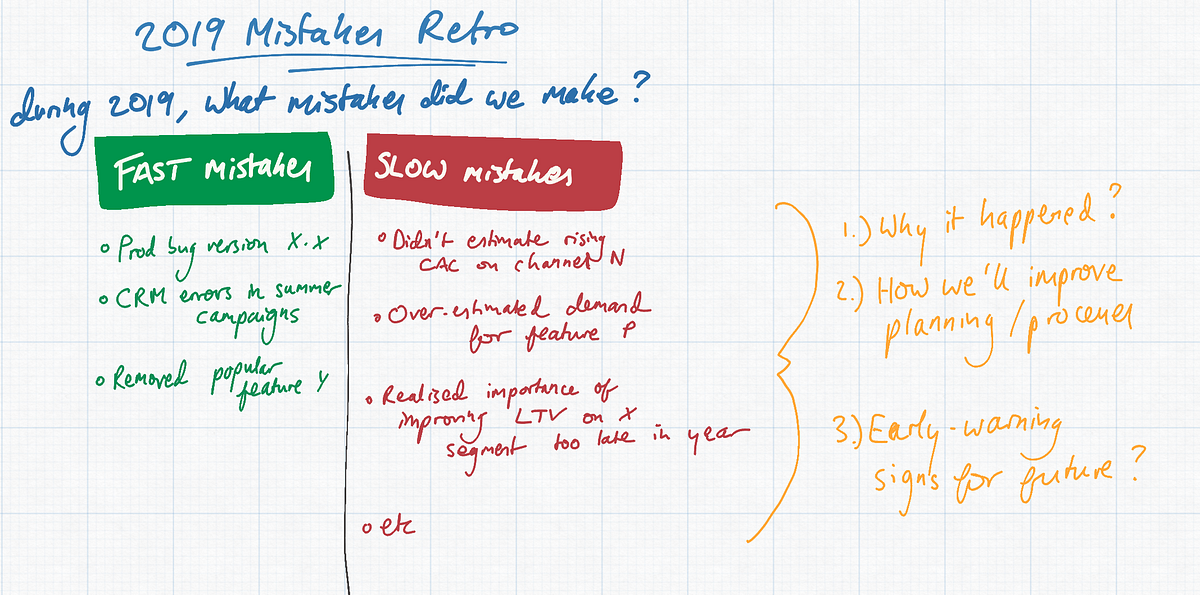 2019 Mistakes Retro
during 2019, what mistakes did we make?
FAST mistakes
• Prod bug version X.X
• CRM errors in summer
campaigns
• Removed popular
feature Y
SLOW mistakes
• Didn't estimate rising
CAC on channel N
• Over-estimated demand
for feature P
• Realised importance of
improving LTV on X
segment too late in year
• etc
1.) Why it happened?
2.) How we'll improve
planning/processes
3.) Early-warning
signs for future?